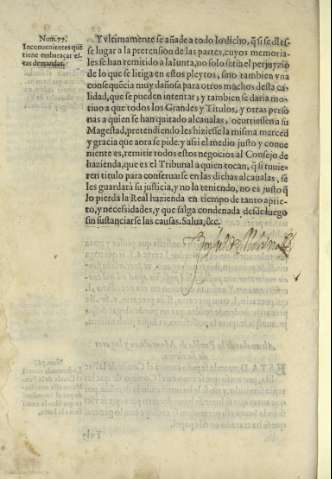 Num. 77.
Inconuenientes que
tiene embaraçar es-
tas demandas.
Y vltimamente se añade a todo lo dicho, q̃ si se dies-
se lugar a la pretension de las partes, cuyos memoria-
les se han remitido a la Iunta, no solo seria el perjuyzio
de lo que se litiga en estos pleytos, sino tambien vna
consequẽcia muy dañosa para otros muchos desta ca-
lidad, que se pueden intentar; y tambien se daria mo-
tiuo a que todos los Grandes y Titulos, y otras perso
nas a quien se han quitado alcaualas, ocurriessen a su
Magestad, pretendiendo les hiziesse la misma merced
y gracia que aora se pide; y assi el medio justo y conue
niente es, remitir todos estos negocios al Consejo de
hazienda, que es el Tribunal a quien tocan, q̃ si tuuie-
ren titulo para conseruarse en las dichas alcaualas, se
les guardarà su justicia, y no la teniendo, no es justo q̃
lo pierda la Real hazienda en tiempo de tanto aprie-
to, y necesidades, y que salga condenada desde luego
sin sustanciarse las causas. Salua, &c.